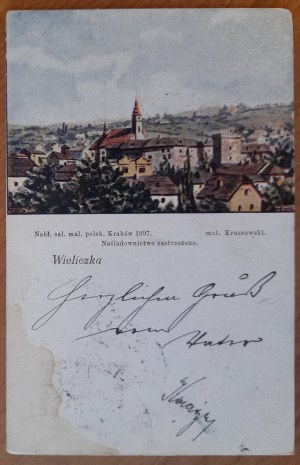 Nakł. sal. mal. polsk. Kraków 1897. mal. Kruszewski.
Naśladownictwo zastrzeżone.
Wieliczka
Herzlichen Gruß
vom Vater